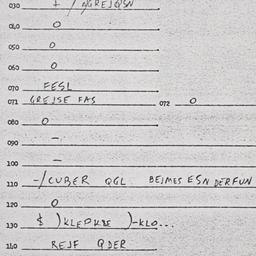 030 / AGREJQSN
040 O
050 O
060 O
070 FESL
071 GREJSE FAS 072 O
080 O
090 –
100 –
110 -/CUBER QGL BEJMES ESN DERFUN
120 O
130 $ )KLEPKBE )-KLO...
140 REJF QDER